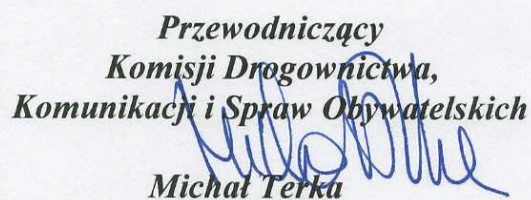 Przewodniczący
Komisji Drogownictwa,
Komunikacji i Spraw Obywatelskich
Michał Terka